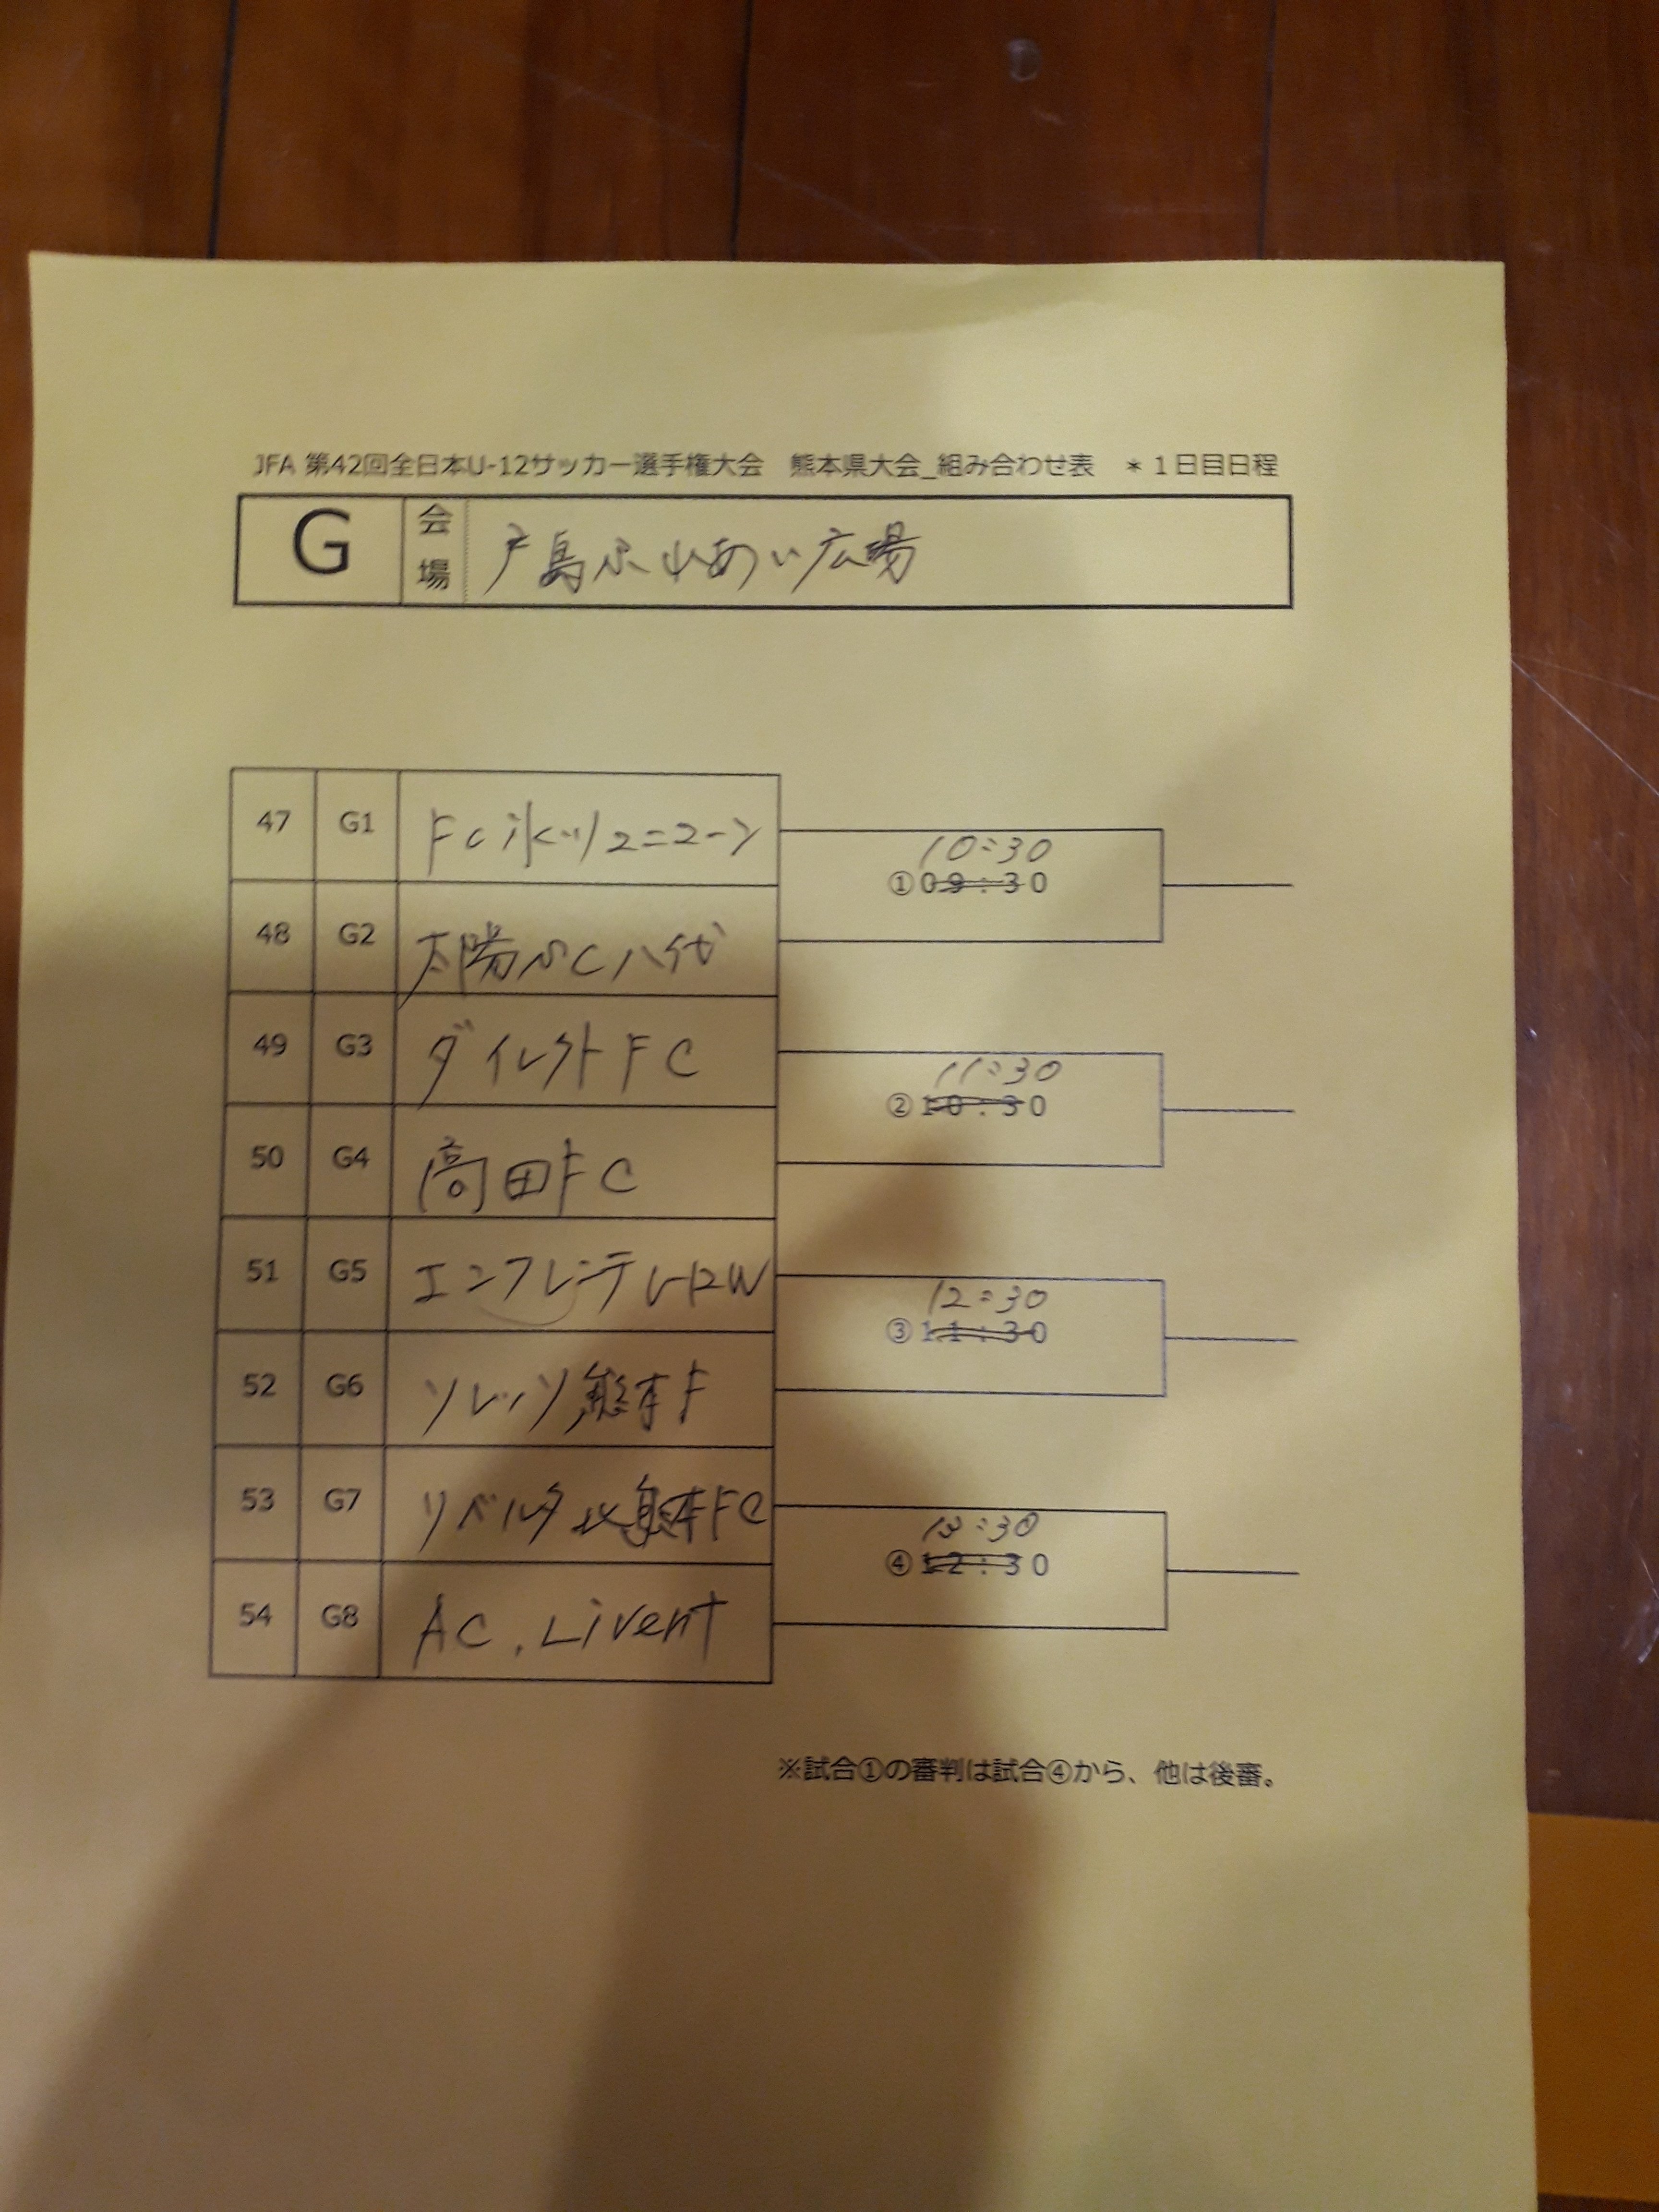 JFA 第42回全日本U-12サッカー選手権大会　熊本県大会_組み合わせ表　＊１日目日程
G 会場 戸島ふれあい広場
47 G1 FC
10:30
①09:30
48 G2 太陽SC八代
49 G3 ダイレクトFC
11:30
②10:30
50 G4 高田FC
51 G5 エンフレンテレーロW
12:30
③11:30
52 G6 ソレッソ熊本F
53 G7 リベルタ北熊本FC
13:30
④12:30
54 G8 AC.Livent
※試合①の審判は試合④から、他は後審。